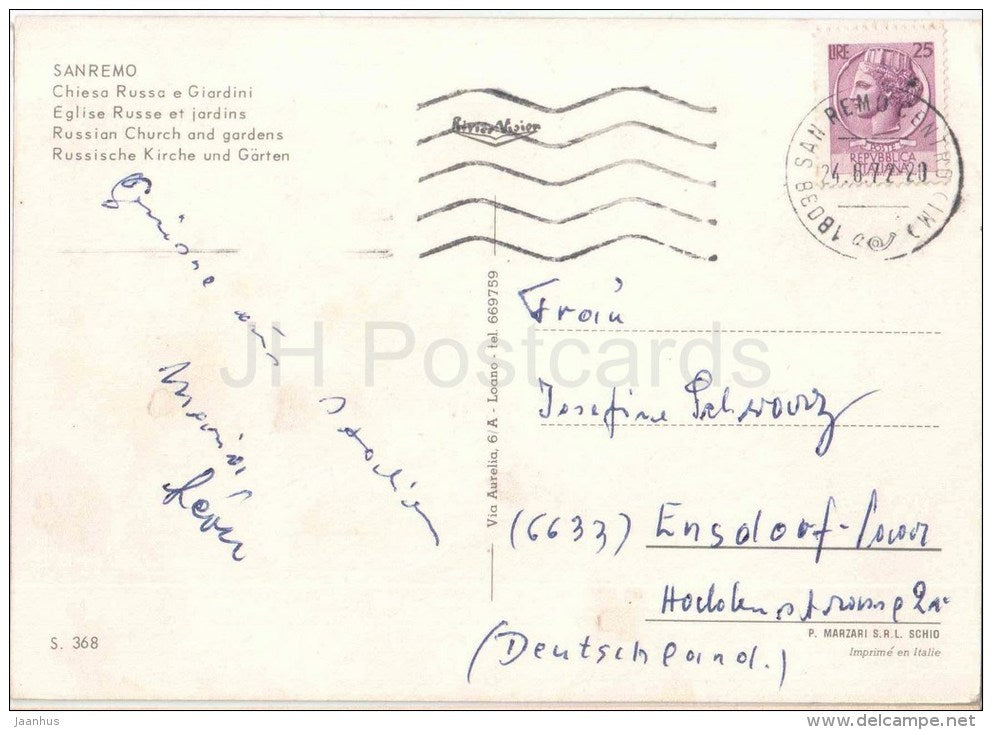 SANREMO
Chiesa Russa e Giardini
Eglise Russe et jardins
Russian Church and gardens
Russische Kirche und Gärten
LIRE 25
POSTE
REPVBBLICA
ITALIANA
18038 SAN REMO CENTRO (IM)
24.8.72-20
Grüsse aus
Italien
Maria
Frau
Josefine Schwarz
(6633) Ensdorf-Saar
2a
(Deutschland.)
Via Aurelia, 6/A - Loano - tel. 669759
S. 368
P. MARZARI S.R.L. SCHIO
Imprimé en Italie
JH Postcards
jaanhus
www.delcampe.net